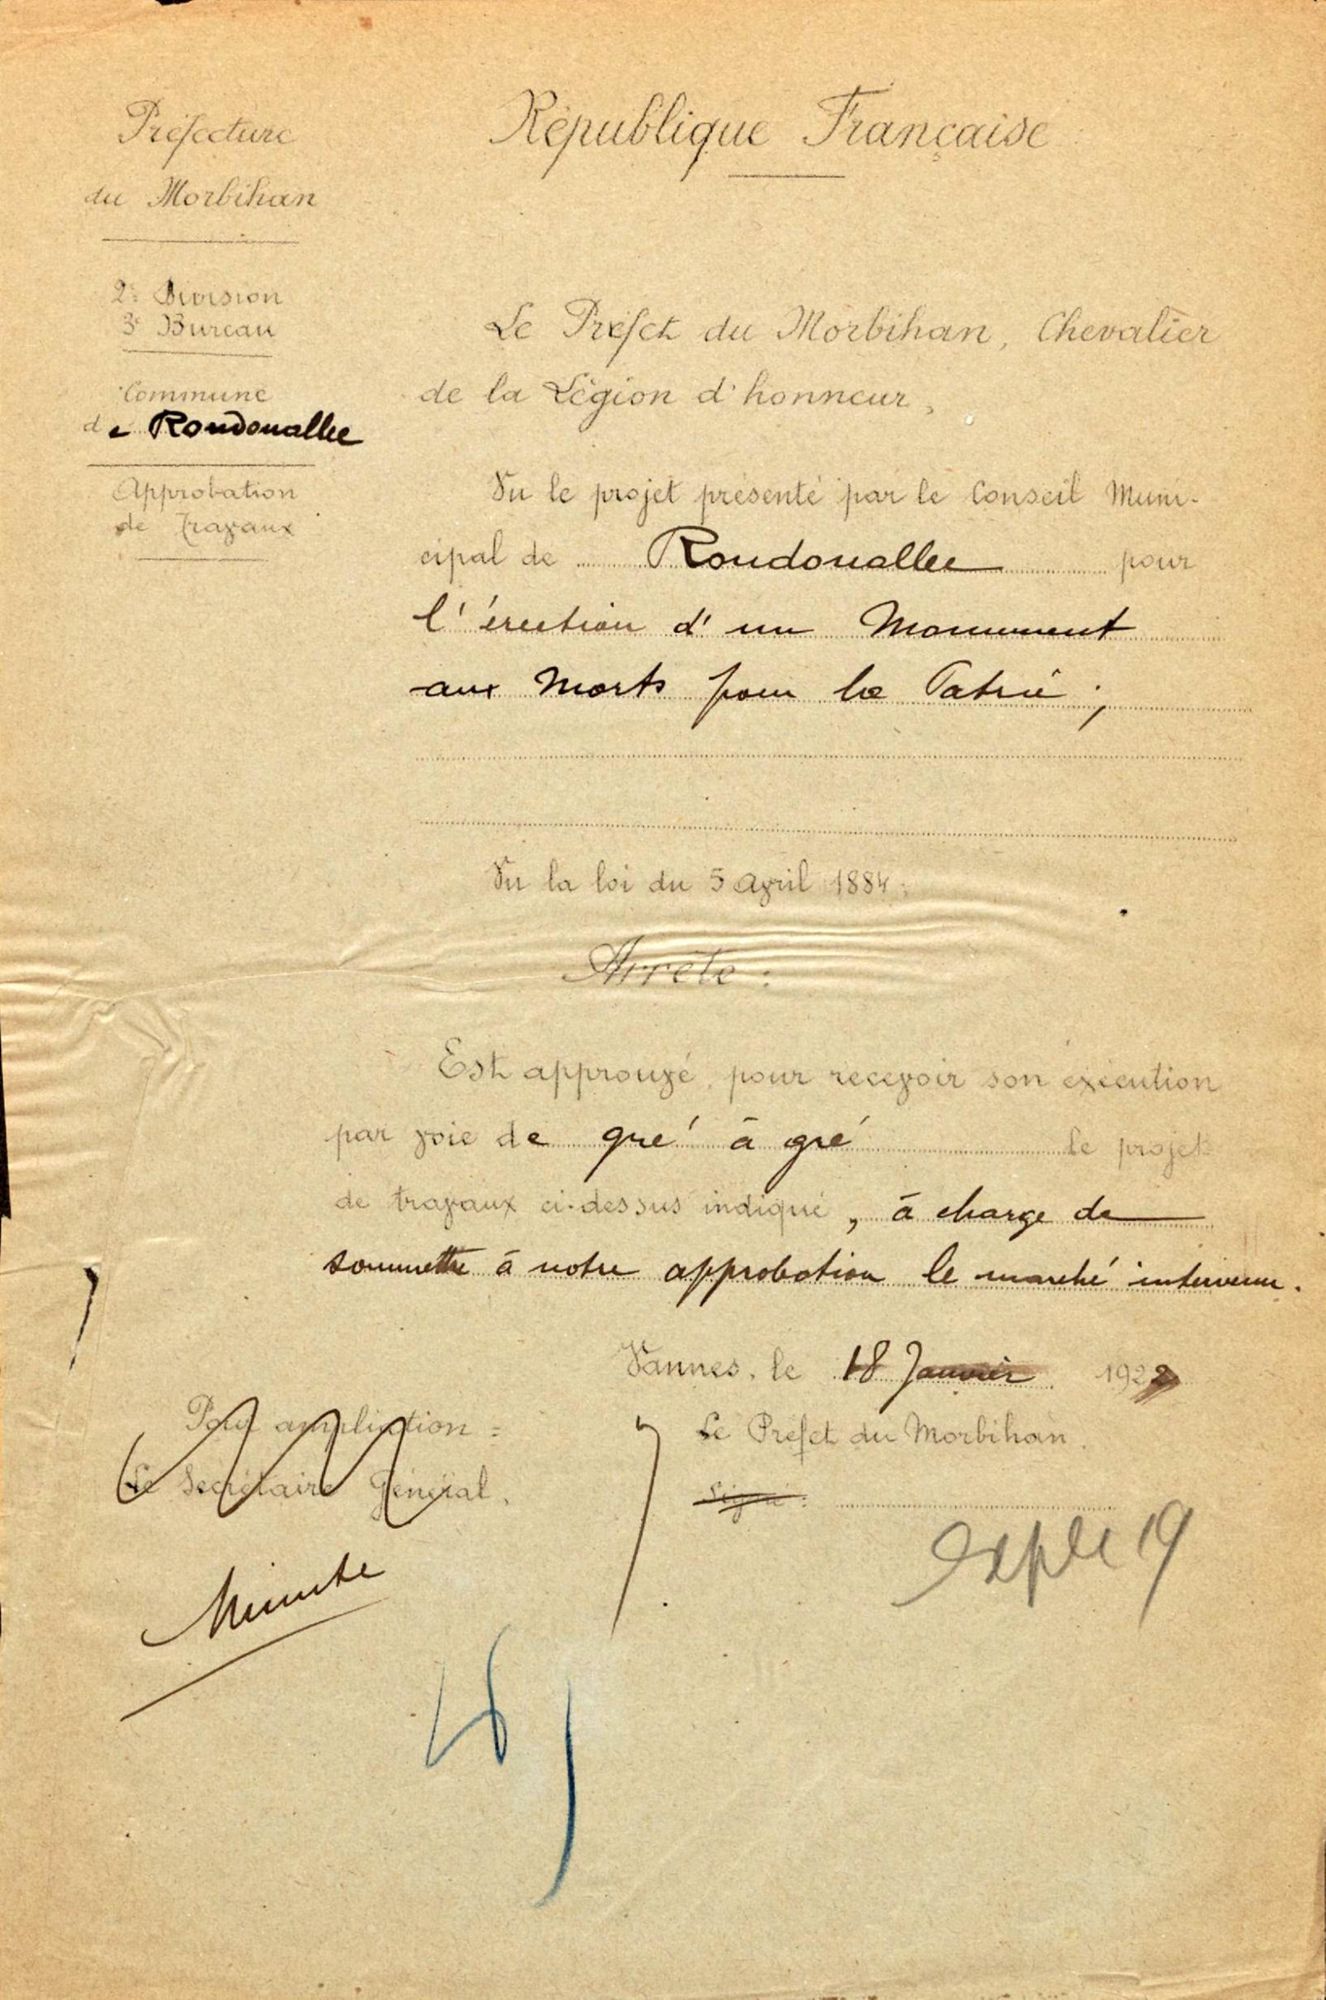 Préfecture
du Morbihan
2e Division
3e Bureau
Commune
de Roudouallec
Approbation
de Travaux
République Française
Le Préfet du Morbihan, Chevalier
de la Légion d'honneur,
Vu le projet présenté par le Conseil Muni-
cipal de Roudouallec pour
l'érection d'un Monument
aux Morts pour la Patrie ;
Vu la loi du 5 Avril 1884 ;
Arrête :
Est approuvé, pour recevoir son éxécution
par voie de gré à gré le projet
de travaux ci-dessus indiqué, à charge de
soumettre à notre approbation le marché intervenu.
Vannes, le 18 Janvier 1922
Pour ampliation :
Le Secrétaire Général,
Minute
Le Préfet du Morbihan.
Signé :
19